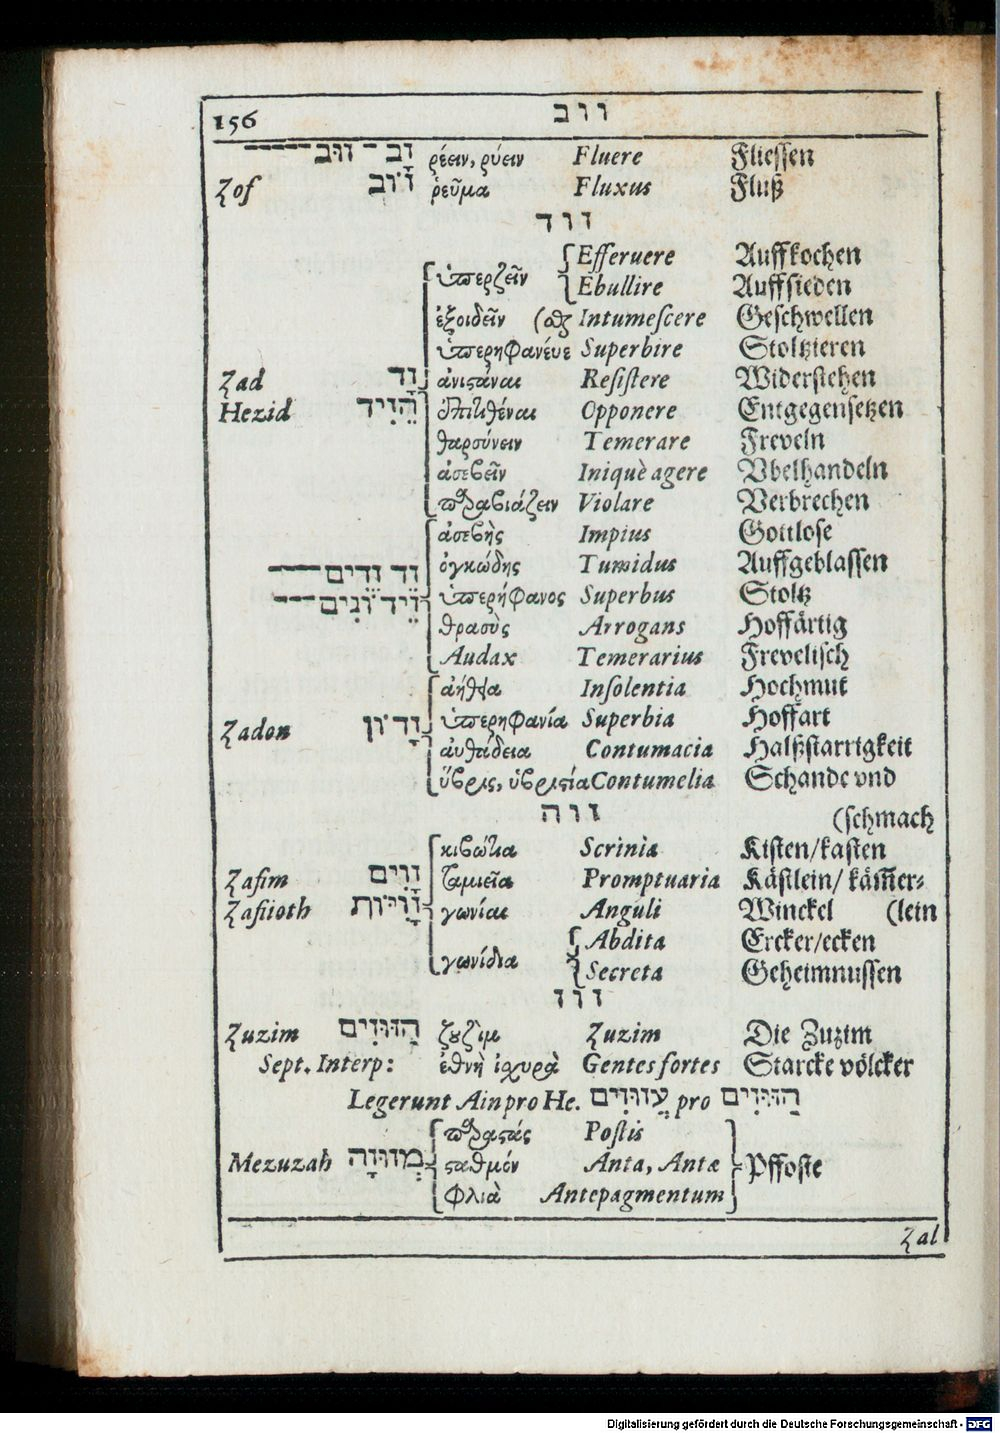 156 זוב
זָב - זוּב ῥέειν, ῥύειν Fluere Fliessen
Zof זוֹב ῥεῦμα Fluxus Fluß
זוד
Efferuere Auffkochen
ὑπερζεῖν Ebullire Auffsieden
ἐξοιδεῖν (ϑαι Intumescere Geschwellen
ὑπερηφανέυε Superbire Stoltzieren
Zad זָד ἀνιϛάναι Resistere Widerstehen
Hezid הֵזִיד ἐπιτιθέναι Opponere Entgegensetzen
θαρσύνειν Temerare Freveln
ἀσεβεῖν Iniquè agere Vbelhandeln
παραβιάζειν Violare Verbrechen
ἀσεβὴς Impius Gottlose
זֵד זֵדִים ὀγκώδης Tumidus Auffgeblassen
ὑπερήφανος Superbus Stoltz
θρασὺς Arrogans Hoffärtig
Audax Temerarius Frevelisch
ἀήθεια Insolentia Hochmut
Zadon זָדוֹן ὑπερηφανία Superbia Hoffart
ἀυθάδεια Contumacia Halßstarrigkeit
ὕβρις, ὑβριϛία Contumelia Schande vnd
זוה (schmach
κιβώτια Scrinia Kisten/kasten
Zafim זָוִים ταμιεῖα Promptuaria Kästlein/ kämer-
Zafiioth זָוִיּוֹת γωνίαι Anguli Winckel (lein
Abdita Ercker/ecken
γωνίδια Secreta Geheimnussen
זוז
Zuzim הַזּוּזִים ζουζὶμ Zuzim Die Zuzim
Sept. Interp: ἐθνὴ ἰχυρὰ Gentes fortes Starcke völcker
Legerunt Ain pro He. עֲזוּזִים pro הַזּוּזִים
παραϛάς Postis
Mezuzah מְזוּזָה ϛαθμόν Anta, Antæ Pffoste
φλιὰ Antepagmentum
Zal
Digitalisierung gefördert durch die Deutsche Forschungsgemeinschaft - DFG